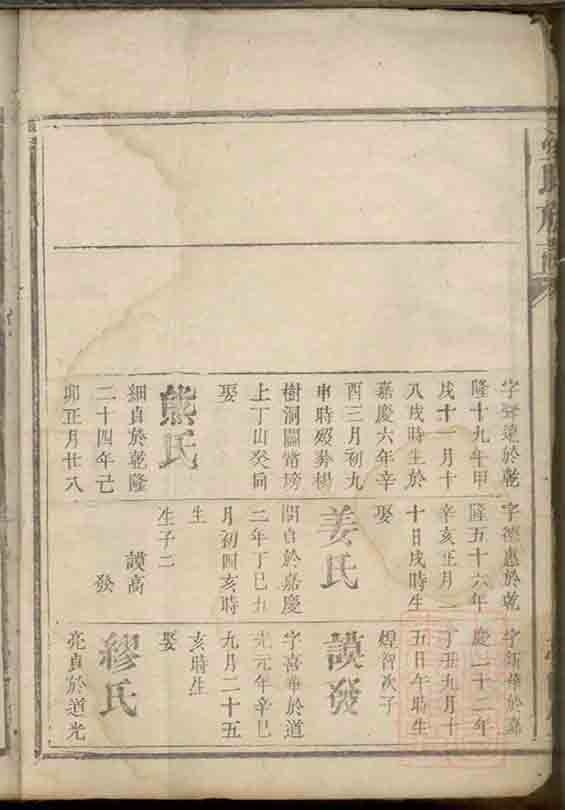 族譜
字聲遠於乾
隆十九年甲
戌十一月十
八戌時生於
嘉慶六年辛
酉三月初九
申時歿葬楊
樹洞關嘗塝
上丁山癸向
娶
熊氏
細貞於乾隆
二十四年己
卯正月廿八
字德惠於乾
隆五十六年
辛亥正月二
十日戌時生
娶
姜氏
閏貞於嘉慶
二年丁巳九
月初四亥時
生
生子二
謨高
發
字新華於嘉
慶二十二年
丁丑九月十
五日午時生
煌智次子
謨發
字喜華於道
光元年辛巳
九月二十五
亥時生
娶
繆氏
亮貞於道光